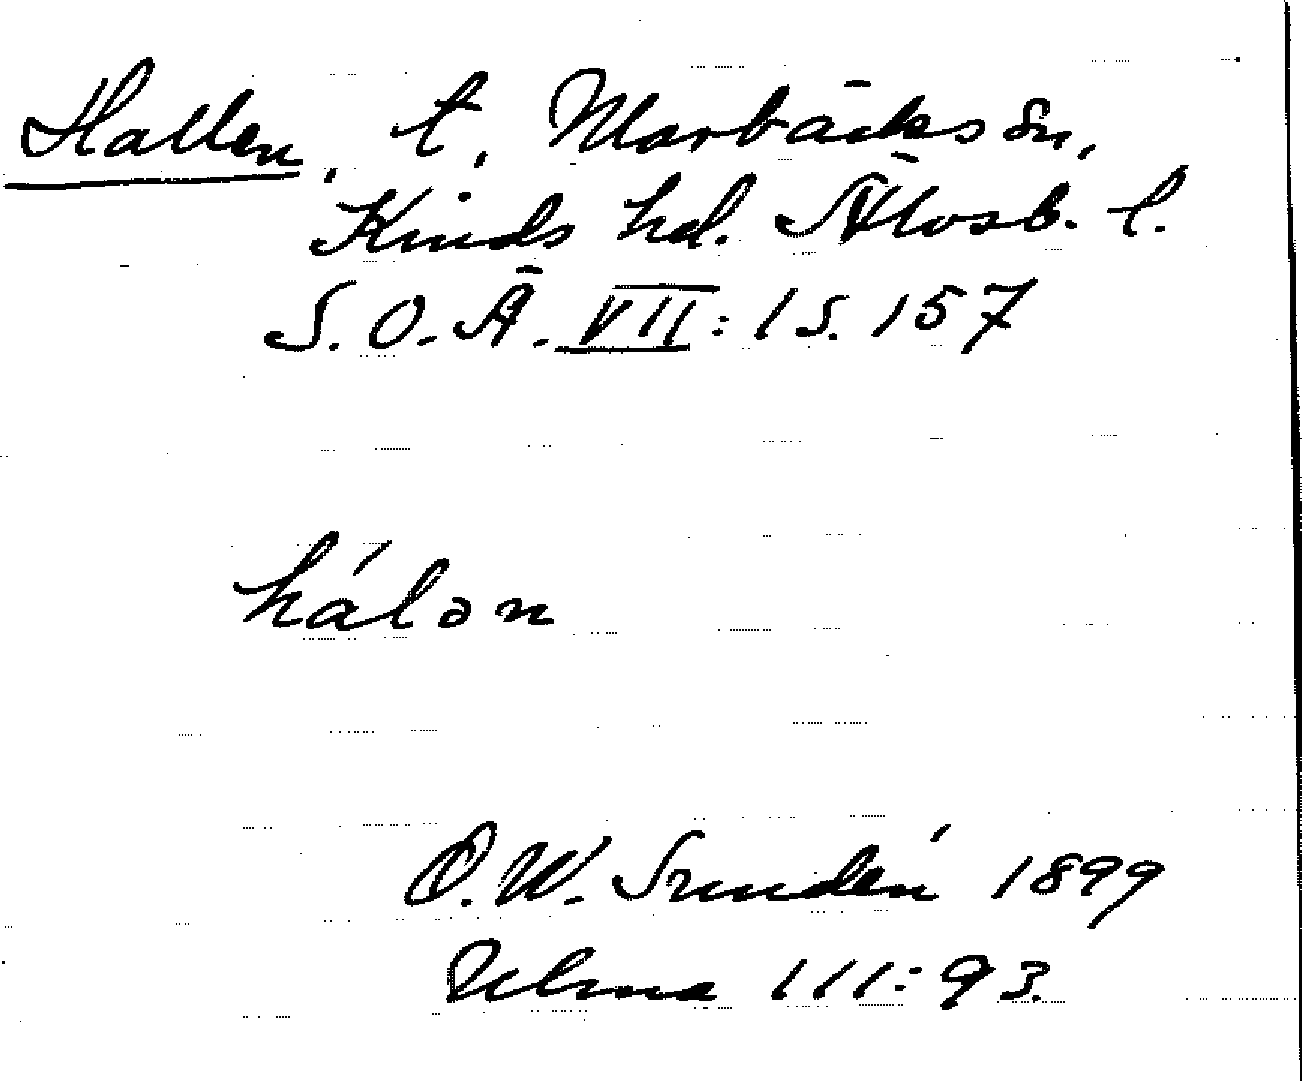 Hallen, t, Marbäcks sn,
Kinds hd. Älvsb. l.
S.O.Ä. VII: 1 s. 157
hálən
O.W. Srundén 1899
Ulma 111:93.